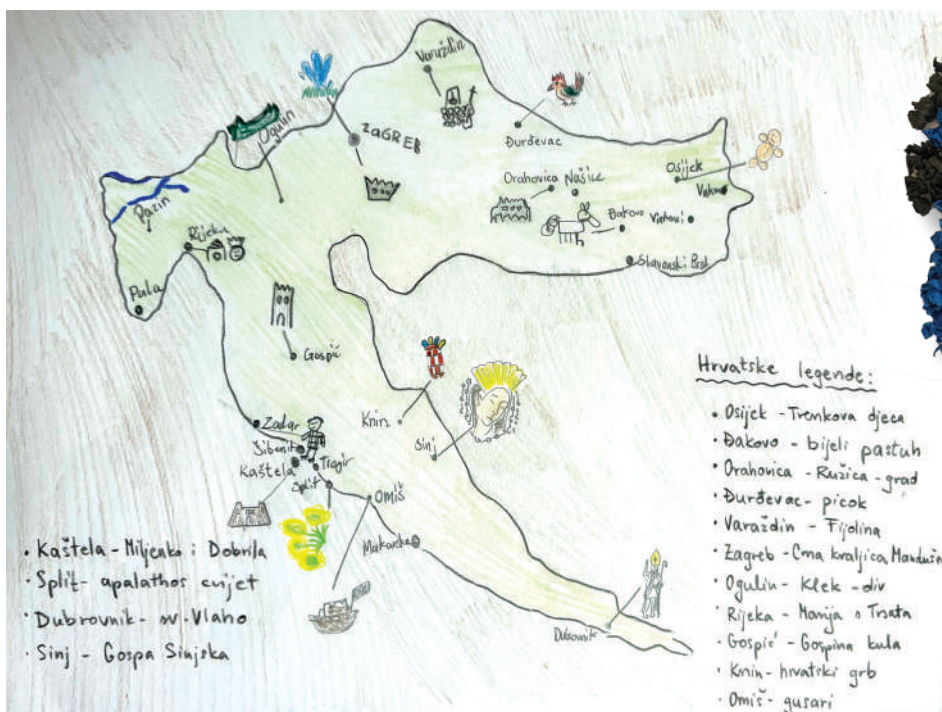 Varaždin
Ogulin
ZAGREB
Đurđevac
Orahovica Našice
Osijek
Pazin
Rijeka
Đakovo Vinkovci
Slavonski Brod
Pula
Gospić
Zadar
Šibenik
Kaštela
Trogir
Split
Omiš
Knin
Sinj
Makarska
Dubrovnik
Hrvatske legende:
• Osijek - Trenkova djeca
• Đakovo - bijeli pastuh
• Orahovica - Ružica - grad
• Đurđevac - picok
• Varaždin - Fijolina
• Zagreb - Crna kraljica,
Ogulin - Klek - div
Rijeka - Marija s Trsata
• Gospić - Gospina kula
• Knin - hrvatski grb
• Omiš - gusari
• Kaštela - Miljenko i Dobrila
• Split - apalathos cvijet
• Dubrovnik - sv. Vlaho
• Sinj - Gospa Sinjska